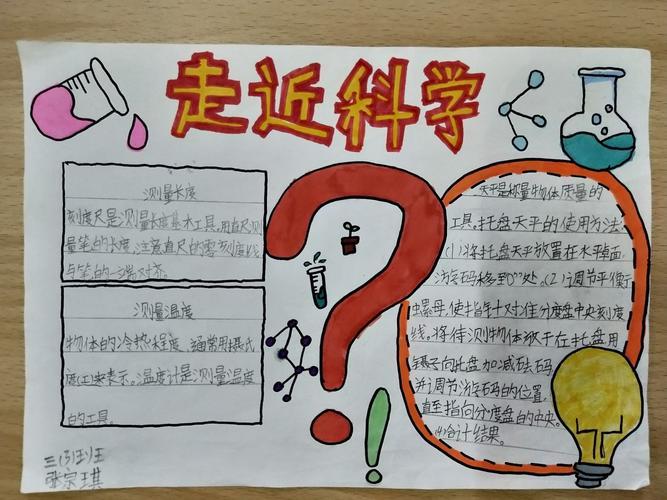 走近科学
测量长度
刻度尺是测量长度基本工具,用直尺测
量笔的长度,注意直尺的零刻度线
与笔的一端对齐.
测量温度
物体的冷热程度,通常用摄氏
度(工)来表示。温度计是测量温度
的工具.
天平是称量物体质量的
工具.托盘天平的使用方法:
(1)将托盘天平放置在水平面,
游码移到"0"处。(2)调节平衡
螺母使指针对准分度盘中央刻度
线。将待测物体放于左托盘用
镊子向托盘加减砝码
并调节游码的位置,
直至指向分度盘的中央。
(4)合计结果。
三(3)班
张宗琪